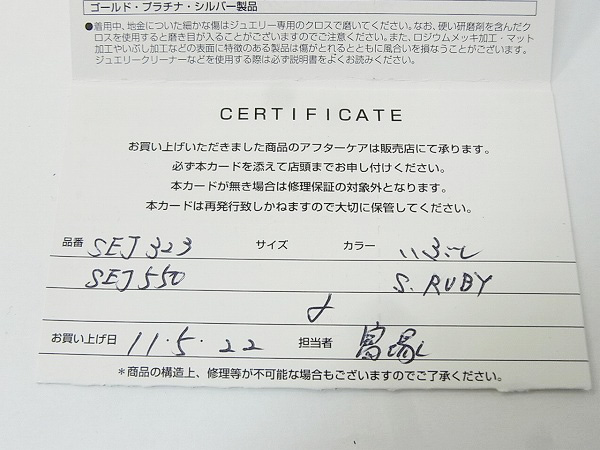 ゴールド・プラチナ・シルバー製品
●着用中、地金についた細かな傷はジュエリー専用のクロスで磨いてください。なお、硬い研磨剤を含んだク
ロスを使用すると磨き目が入ることがございますのでご注意ください。また、ロジウムメッキ加工・マット
加工やいぶし加工などの表面に特徴のある製品は傷がとれるとともに風合いを損なうことがございます。
ジュエリークリーナーなどを使用する際は必ず説明書をよくお読みください。
CERTIFICATE
お買い上げいただきました商品のアフターケアは販売店にて承ります。
必ず本カードを添えて店頭までお申し付けください。
本カードが無き場合は修理保証の対象外となります。
本カードは再発行致しかねますので大切に保管してください。
品番 SEJ 323 サイズ カラー いぶし
SEJ 550 S. RUBY
お買い上げ日 11.5.22 担当者
＊商品の構造上、修理等が不可能な場合もございますのでご了承ください。